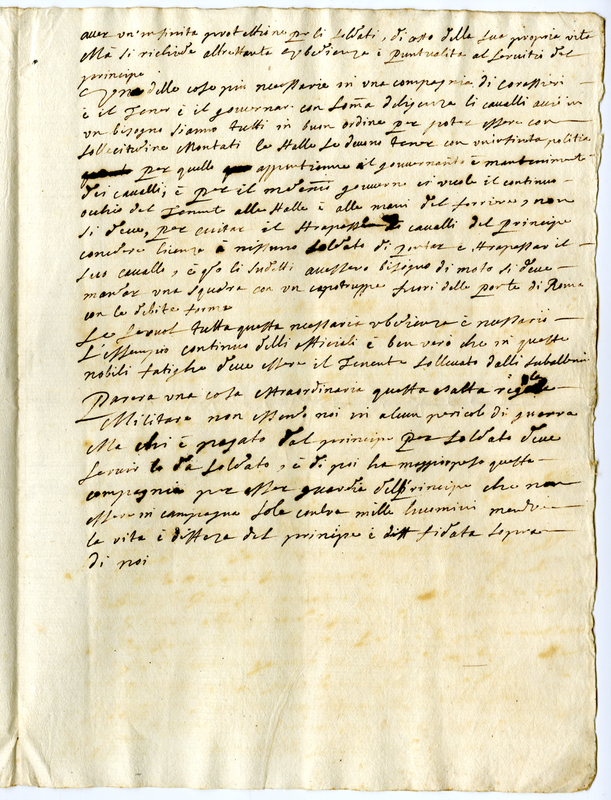 aver un'infinita protettione per li soldati, di otto della sua propria vita
Mà si richiede altrettanta ubedienza è puntualità al servitio del
principe
Una delle cose più necessarie in una compagnia di corassieri
è il tener è il governar con somà deligenza li cavalli acciò in
un bisogno siano tutti in buon ordine per poter essere con
sollecitudine Montati le stalle se devono tener con un'infinita politia
per quello appartiene al governarli è mantenimento
dei cavalli, è per il governo ci vuole il continuo
occhio del Tenente alle stalle è alle mani del ferraro, non
si deve, per evitar il strapasso cavalli del principe
concedere licenza à nissuno soldato di portar è strapassar il
suo cavallo, è se li sudetti avessero bisogno di moto si deve
mandar una squadra con un capotruppa fuori delle porte di Roma
con le debite forme
Se si vuol tutta questa necessaria ubedienza è necessario
L'essempio continuo delli officiali è ben vero che in queste
nobili fatighe deve essere il Tenente sollevato dalli subalterni
Parera una cosa straordinaria questa esatta
Militare non essendo noi in alcun pericolo di guerra
Ma chi è pagato dal principe per soldato deve
servir da soldato, è di poi ha maggior peso questa
compagnia per esser guardia del principe che non
essere in campagna sola contra mille huomini mentre
la vita è difesa del principe è fidata sopra
di noi